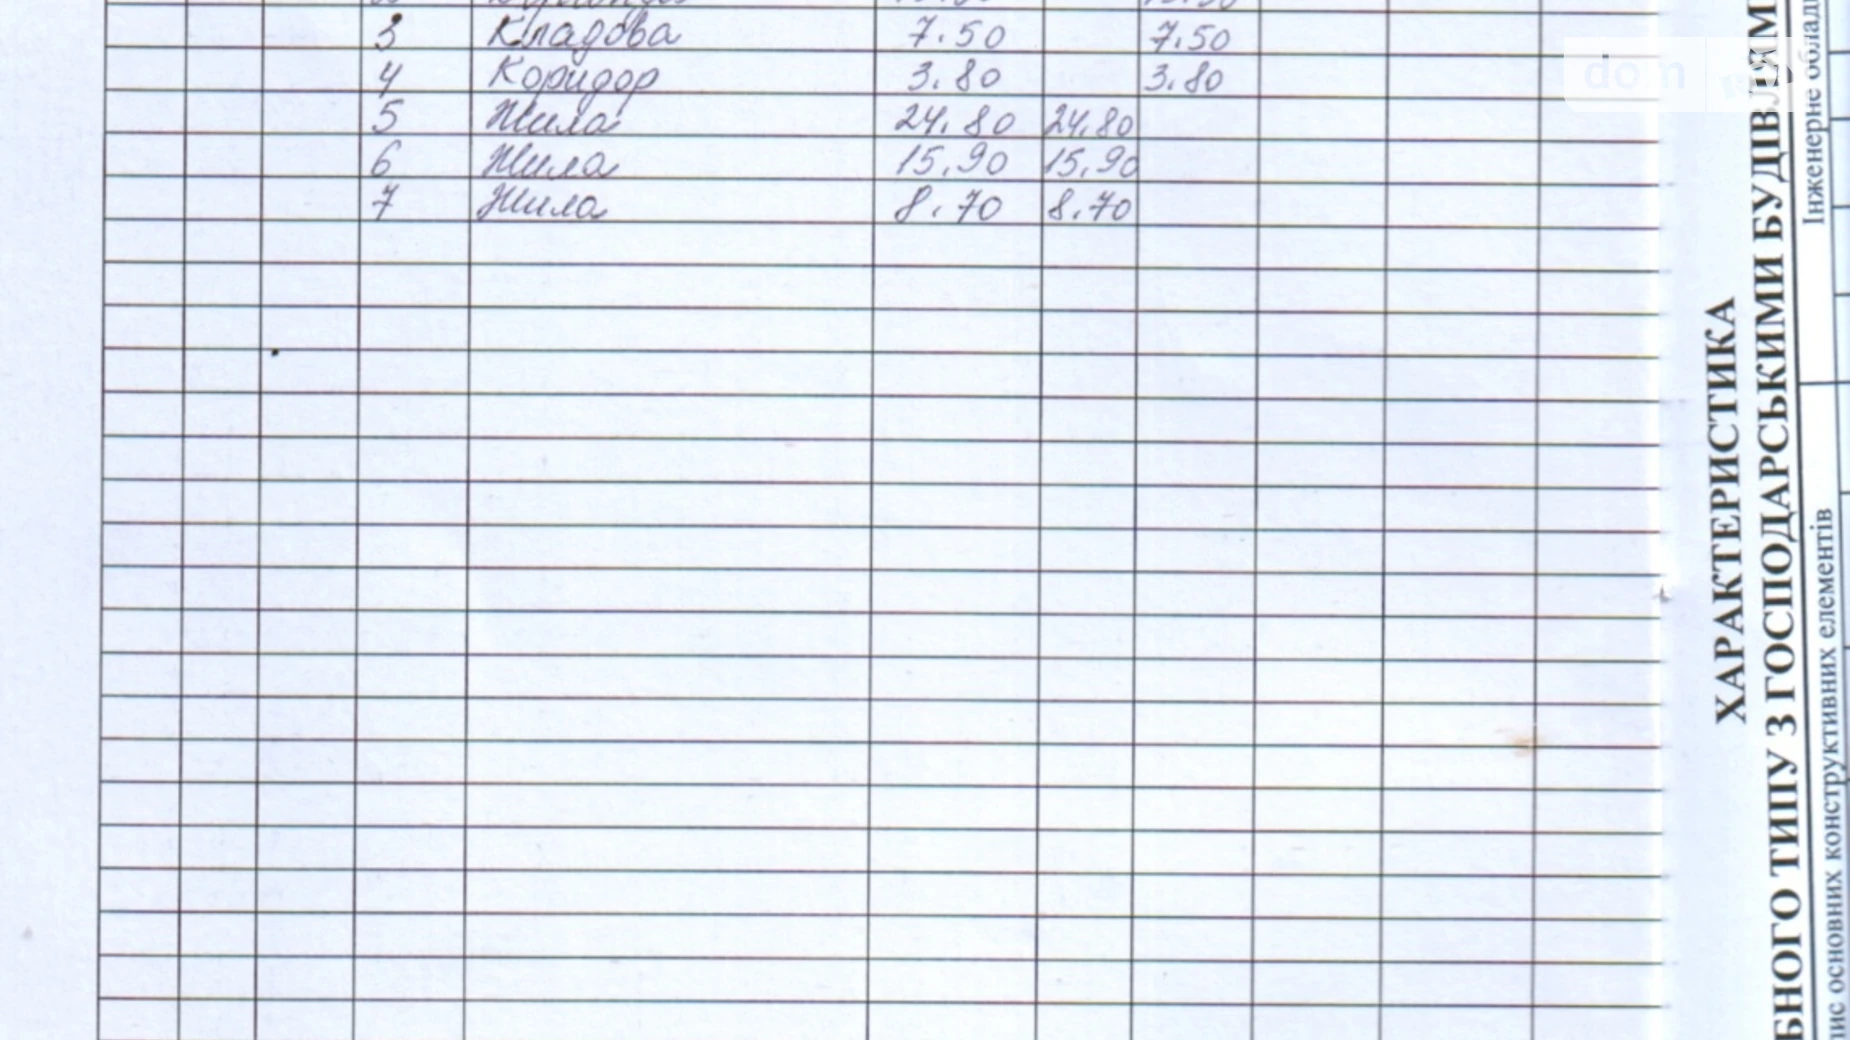 3 Кладова 7.50 7.50
4 Коридор 3.80 3.80
5 Жила 24.80 24.80
6 Жила 15.90 15.90
7 Жила 8.70 8.70
ХАРАКТЕРИСТИКА
БНОГО ТИПУ З ГОСПОДАРСЬКИМИ БУДІВЛЯМ
Інженерне облад
пис основних конструктивних елементів
dom